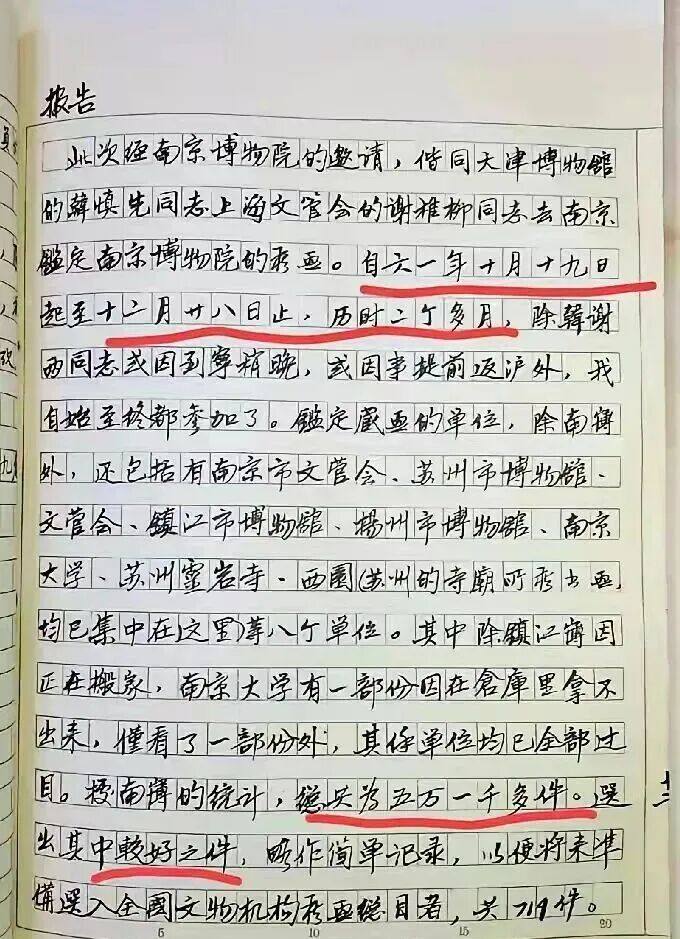 报告
此次经南京博物院的邀请，偕同天津博物館
的韓慎先同志上海文管会的谢稚柳同志去南京
鑑定南京博物院的藏画。自六一年十月十九日
起至十二月廿八日止，历时二个多月，除韓谢
两同志或因到寧稍晚，或因事提前返沪外，我
自始至终都参加了。鑑定藏画的单位，除南博
外，还包括有南京市文管会、苏州市博物館、
文管会、鎮江市博物館、揚州市博物館、南京
大学、苏州靈岩寺·西園(苏州的寺廟所藏书画，
均已集中在这里)等八个单位。其中除鎮江寄因
正在搬家，南京大学有一部份因在倉庫里拿不
出来，僅看了一部份外，其他单位均已全部过
目。據南博的统计，總共为五万一千多件。選
出其中較好之件，略作简单记录，以便将来準
備選入全國文物机构藏画總目者，共719件。
5 10 15 20